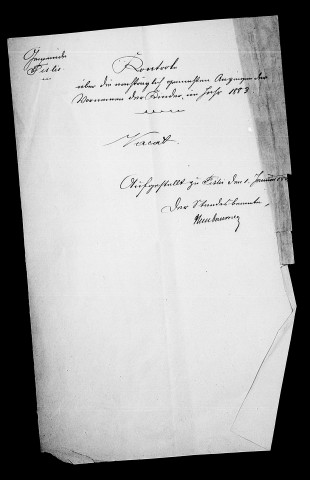 Gemeinde
Fislis
Kontrole
über die nachträglich gemachten Anzeigen der
Vornamen der Kinder, im Jahr 1883
Vacat.
Aufgestellt zu Fislis den 1. Januar
Der Standesbeamte,